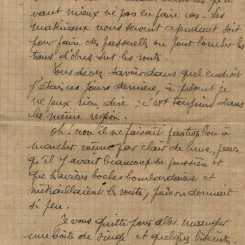 vaut mieux ne pas en faire cas. Les
matériaux nous servent cependant soit
pour faire des passerelles ou pour boucher les
trous d'obus sur les routes.
Vous devez savoir dans quel endroit
j'étais ces jours derniers, à présent je
ne peux rien dire : c'est toujours dans
la même région.
Oh ! non il ne faisait pas trop bon à
marcher même par clair de lune, parce
qu'il y avait beaucoup de poussière et
que les avions boches bombardaient et
mitraillaient la route, puis on donnait
si peu.
Je vous quitte pour aller manger
une boîte de singe et quelques biscuits